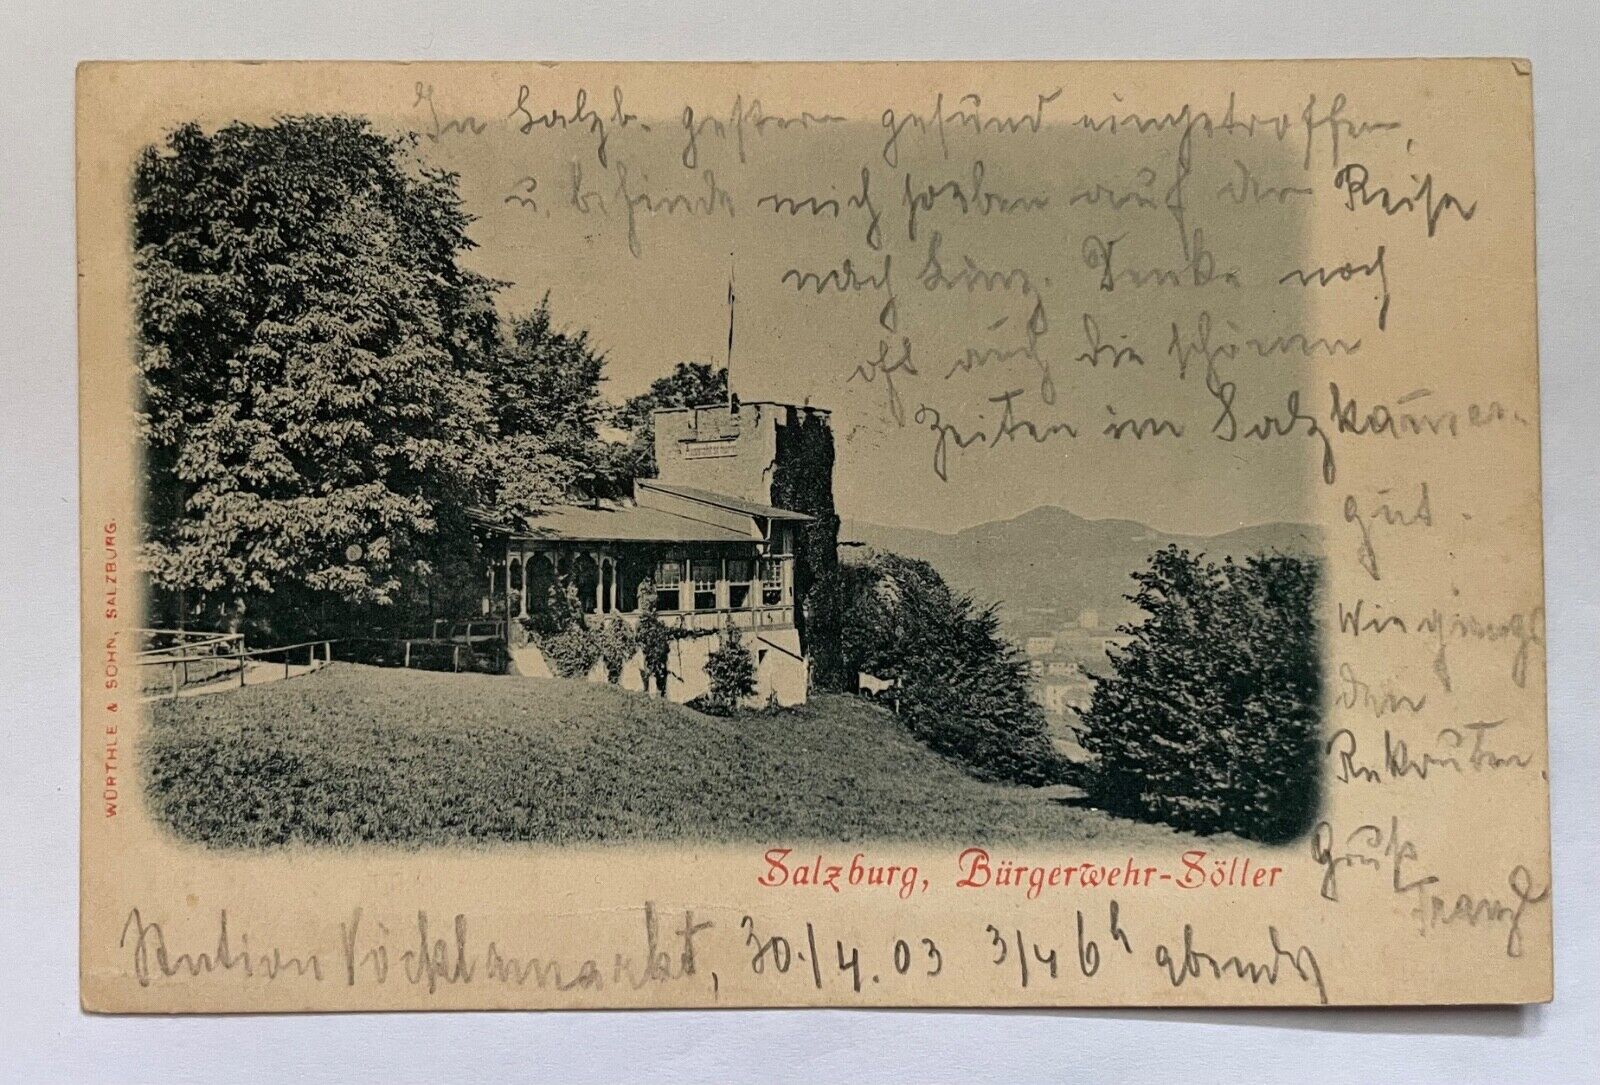 In Salzb. gestern gesund eingetroffen,
u. befinde mich soeben auf der Reise
nach Linz. Denke noch
oft auch die schönen
Zeiten im Salzkammer-
gut.
Wie gings
den
Rekruten.
Gruß
Franz
Salzburg, Bürgerwehr-Söller
Station Vöcklamarkt, 30./4.03 3/4 6h abends
WÜRTHLE & SOHN, SALZBURG.